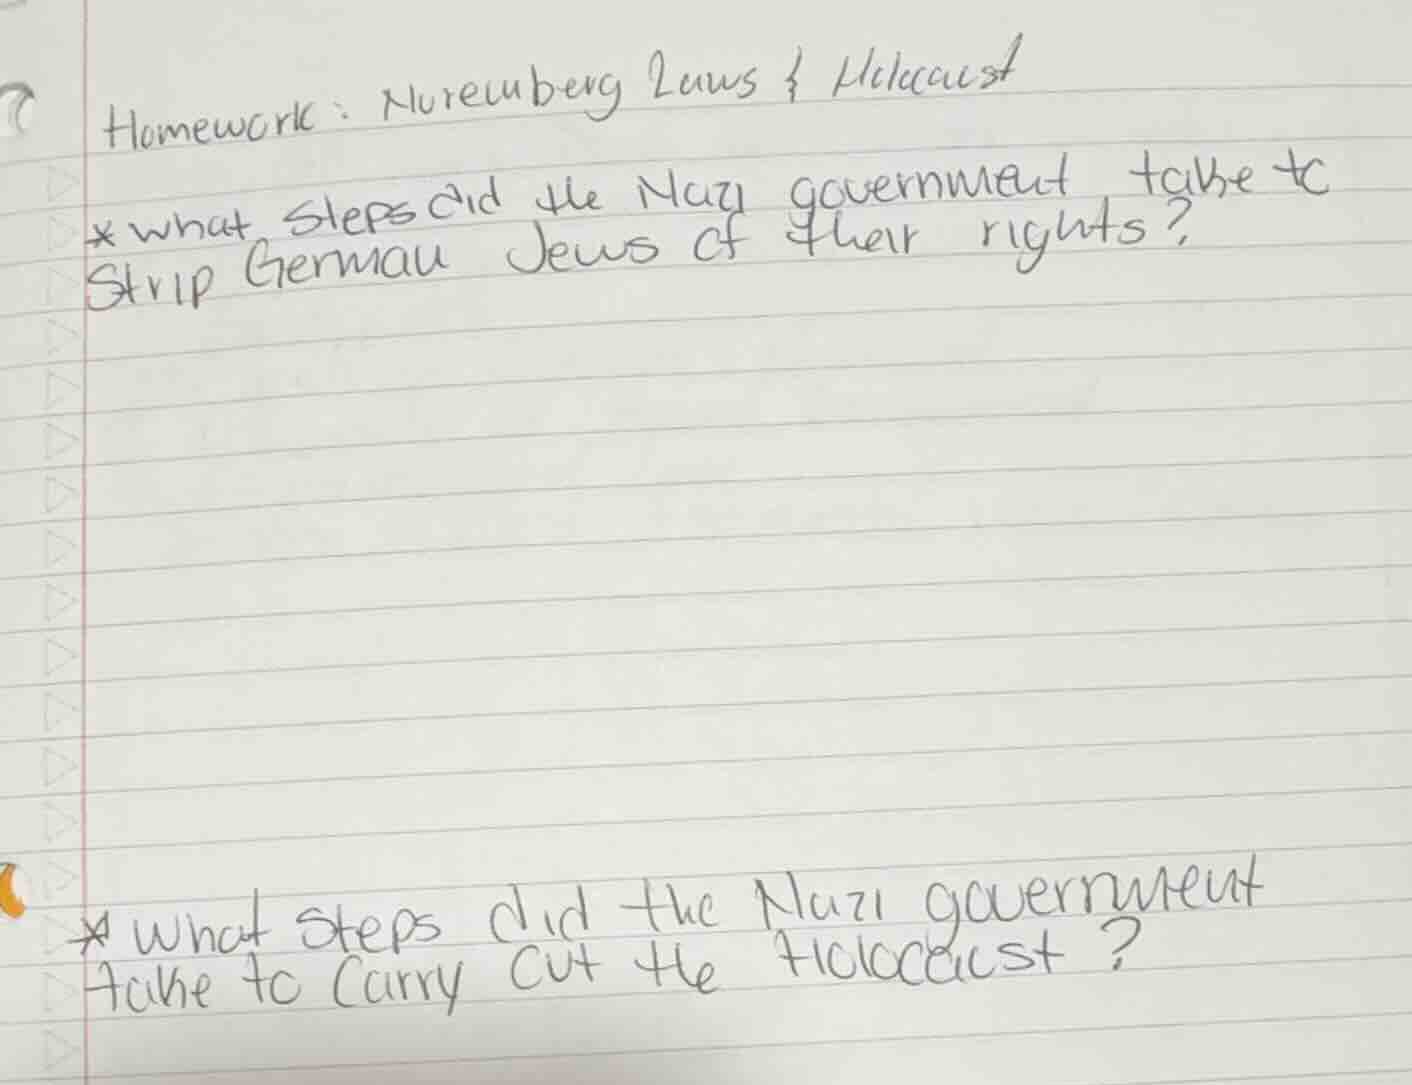 Homework: Nuremberg Laws & Holocaust
* What steps did the Nazi government take to
Strip German Jews of their rights?
* What steps did the Nazi government
take to Carry out the Holocaust?